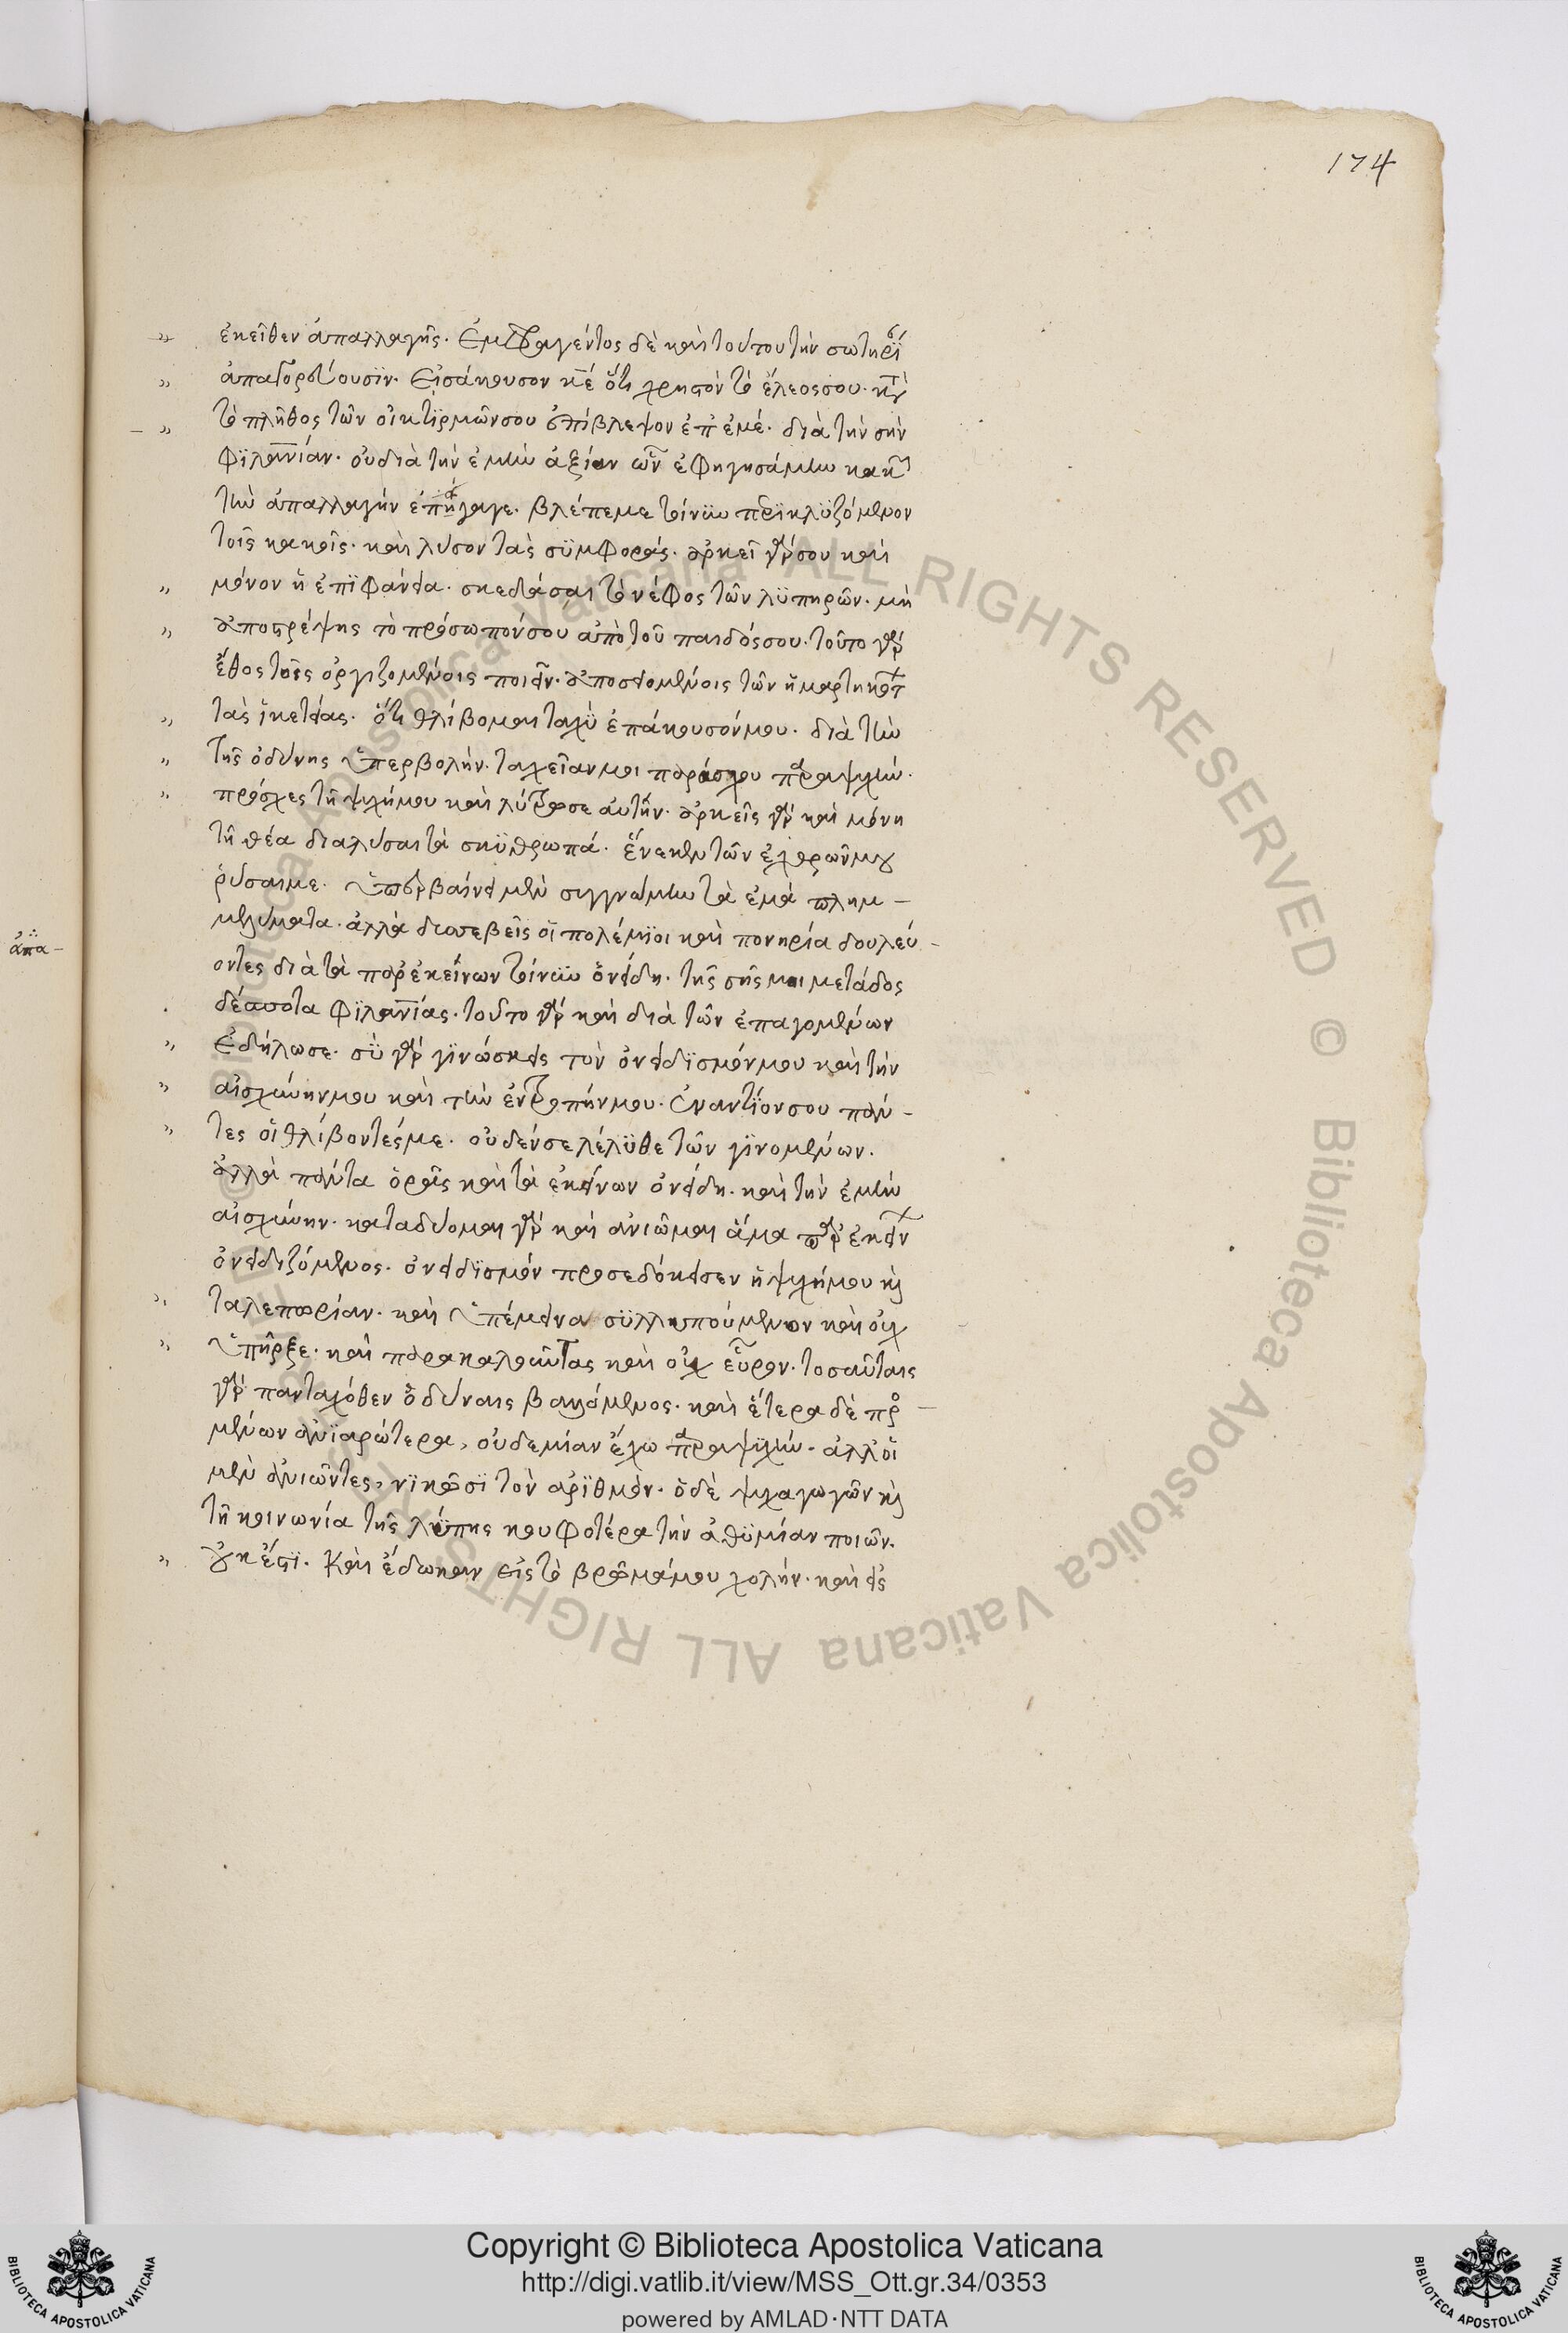 174
ἐκεῖθεν ἀπαλλαγῆς. Ἐμφραγέντος δὲ καὶ τούτου τὴν σωτηρί
ἀπαγορεύουσϊν. Εἰσάκουσον κε ὅτι χρηστὸν τὸ ἔλεος σου. κατὰ
τὸ πλῆθος τῶν οἰκτϊρμῶν σου ἐπίβλεψον ἐπ ἐμέ. διὰ τὴν σὴν
φϊλανίαν. οὐ διὰ τὴν ἐμὴν ἀξίαν ὧν ἐφηγησάμην κακῶν
τὴν ἀπαλλαγήν ἐπάγαγε. βλέπε με τοίνϋν περϊκλϋζόμενον
τοῖς κακοῖς. καὶ λυσον τὰς σϋμφοράς. ἀρκεῖ γάρ σου καὶ
μόνον ἡ ἐπϊφάνεια. σκεδάσαι τὸ νέφος τῶν λϋπηρῶν. μὴ
ἀποστρέψης τὸ πρόσωπόν σου ἀπὸ τοῦ παιδός σου. τοῦτο γὰρ
ἔθος τοῖς ὀργιζομένοις ποιεῖν. ἀποσειομένοις τῶν ἡμαρτηκότων
τὰς ἱκετείας. ὅτι θλίβομαι ταχϋ ἐπάκουσόν μου. διὰ τὴν
τῆς ὀδύνης ὑπερβολήν. ταχεῖαν μοι παράσχου παραψυχήν.
πρόσχες τῆ ψυχῆ μου καὶ λύτρωσε αὐτήν. ἀρκεῖς γὰρ καὶ μόνη
τῆ θέα διαλύσαι τὰ σκϋθρωπά. ἕνεκεν τῶν ἐχθρῶν μου
ῥύσαι με. ὑπερβαίνει μὲν συγγνώμην τὰ ἐμὰ πλημ –
μελήματα. ἀλλὰ δυσσεβεῖς οἱ πολέμϊοι καὶ πονηρία δουλεύ –
οντες διὰ τὰ παρ ἐκείνων τοίνϋν ὀνείδη. τῆς σῆς μοι μετάδος
δέσποτα φϊλανίας. τοῦτο γὰρ καὶ διὰ τῶν ἐπαγομένων
ἐδήλωσε. σϋ γὰρ γϊνώσκεις τὸν ὀνειδϊσμόν μου καὶ τὴν
αἰσχύνην μου καὶ τὴν ἐντροπήν μου. ἐναντϊον σου πάν –
ἀπα –
τες οἱ θλίβοντές με. οὐδέν σε λέλϋθε τῶν γϊνομένων.
ἀλλὰ πάντα ὁρᾶς καὶ τὰ ἐκείνων ὀνείδη. καὶ τὴν ἐμὴν
αἰσχύνην. καταδύομαι γὰρ καὶ ἀνιῶμαι ἅμα παρ ἐκείνων
ὀνειδιζόμενος. ὀνειδϊσμόν προσεδόκησεν ἡ ψυχή μου καὶ
ταλεπωρίαν. καὶ ὑπέμεινα σϋλλυπούμενον καὶ οὐχ
ὑπῆρξε. καὶ παρακαλοῦντας καὶ οὐχ εὗρον. τοσαύταις
γὰρ πανταχόθεν ὀδύναις βαλλόμενος. καὶ ἕτερα δὲ προ –
μένων ἀνϊαρώτερα, οὐδεμίαν ἔχω παραψυχήν. ἀλλ οἱ
μὲν ἀνιῶντες, νϊκῶσϊ τὸν ἀρϊθμόν. ὁ δὲ ψυχαγωγῶν καὶ
τῆ κοινωνία τῆς λύπης κουφοτέρα τὴν ἀθϋμίαν ποιῶν.
οὐκ ἔστϊ. Καὶ ἔδωκαν εἰς τὸ βρῶμά μου χολήν. καὶ εἰς
Copyright © Biblioteca Apostolica Vaticana
http://digi.vatlib.it/view/MSS_Ott.gr.34/0353
powered by AMLAD·NTT DATA
BIBLIOTECA APOSTOLICA VATICANA
BIBLIOTECA APOSTOLICA VATICANA
© Biblioteca Apostolica Vaticana ALL RIGHTS RESERVED © Biblioteca Apostolica Vaticana ALL RIGHTS RESERVED